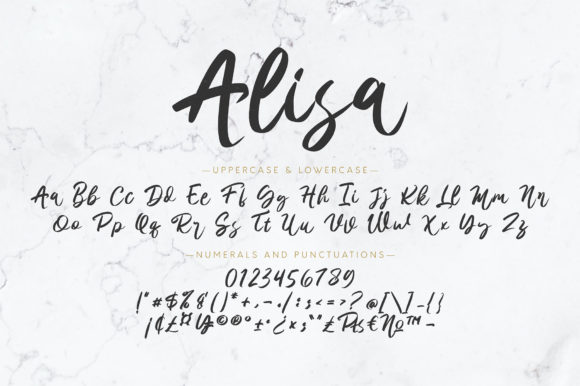 Alisa
—UPPERCASE & LOWERCASE—
Aa Bb Cc Dd Ee Ff Gg Hh Ii Jj Kk Ll Mm Nn
Oo Pp Qq Rr Ss Tt Uu Vv Ww Xx Yy Zz
—NUMERALS AND PUNCTUATIONS—
0123456789
!"#$%&'()*+,-./:;<=>?@[\]_{}
¡¢£¤¥©®°±·¿×;“”₤₧€№™−